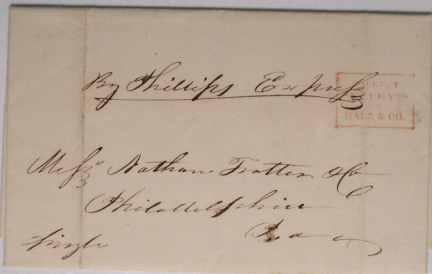 By Phillips Express
COLLECT
CENTS
HALE & CO.
Messrs Nathan Trotter & Co
Philadelphia
Pa
Single